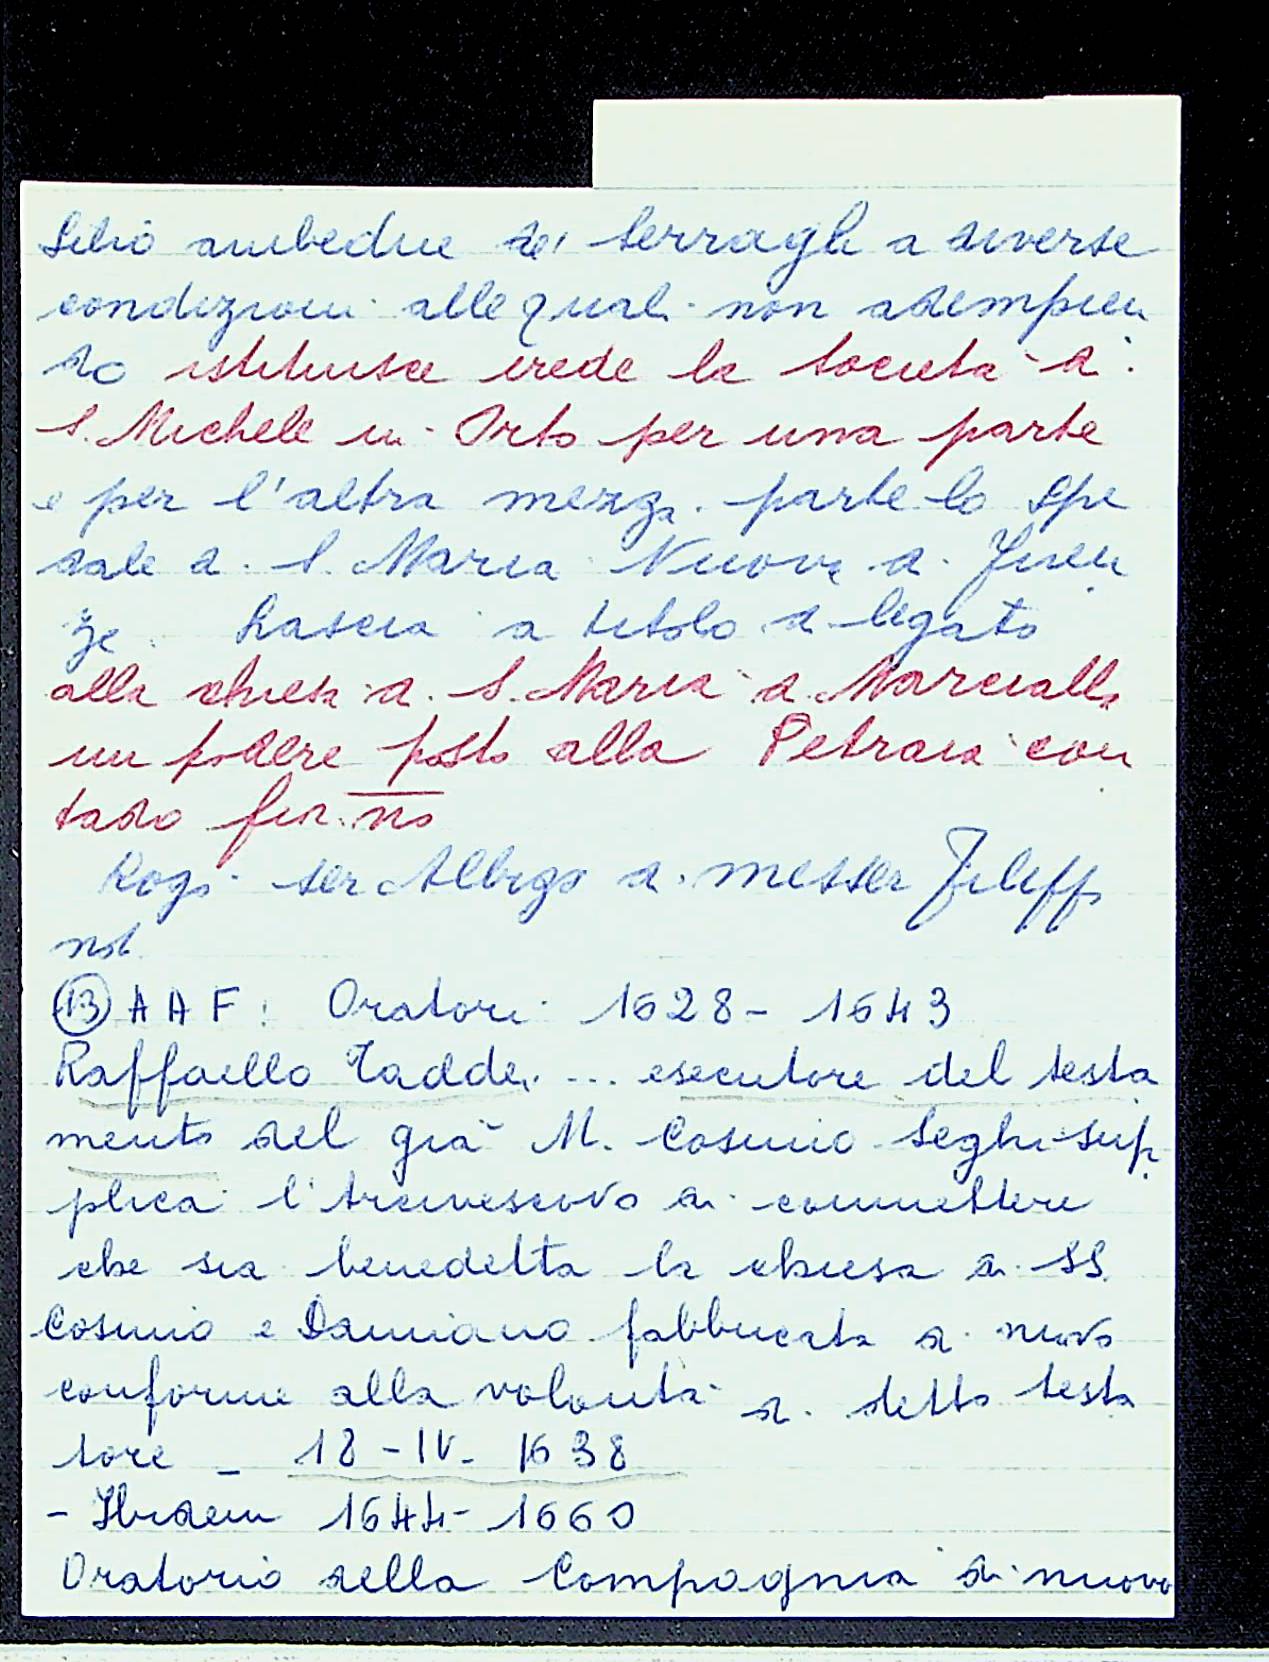 ambedue de' Serragli a diverse
condizioni alle quali non adempien
do istituisce erede la società di
S. Michele in Orto per una parte
e per l'altra mezza parte lo spe
dale di S. Maria Nuova di Firen
ze. Lascia a titolo di legato
alla chiesa di S. Maria a Marcialla
un podere posto alla Petraia con
tado fior.no
Rogò ser Albizo di messer Filippo
not.
(13) A A F: Oratori 1628 - 1643
Raffaello Taddei ... esecutore del testa
mento del già M. Cosimo Seghi sup
plica l'arcivescovo di commettere
che sia benedetta la chiesa di SS.
Cosimo e Damiano fabbricata di nuovo
conforme alla volontà di detto testa
tore - 18 - IV - 1638
- Ibidem 1644 - 1660
Oratorio della Compagnia di nuovo